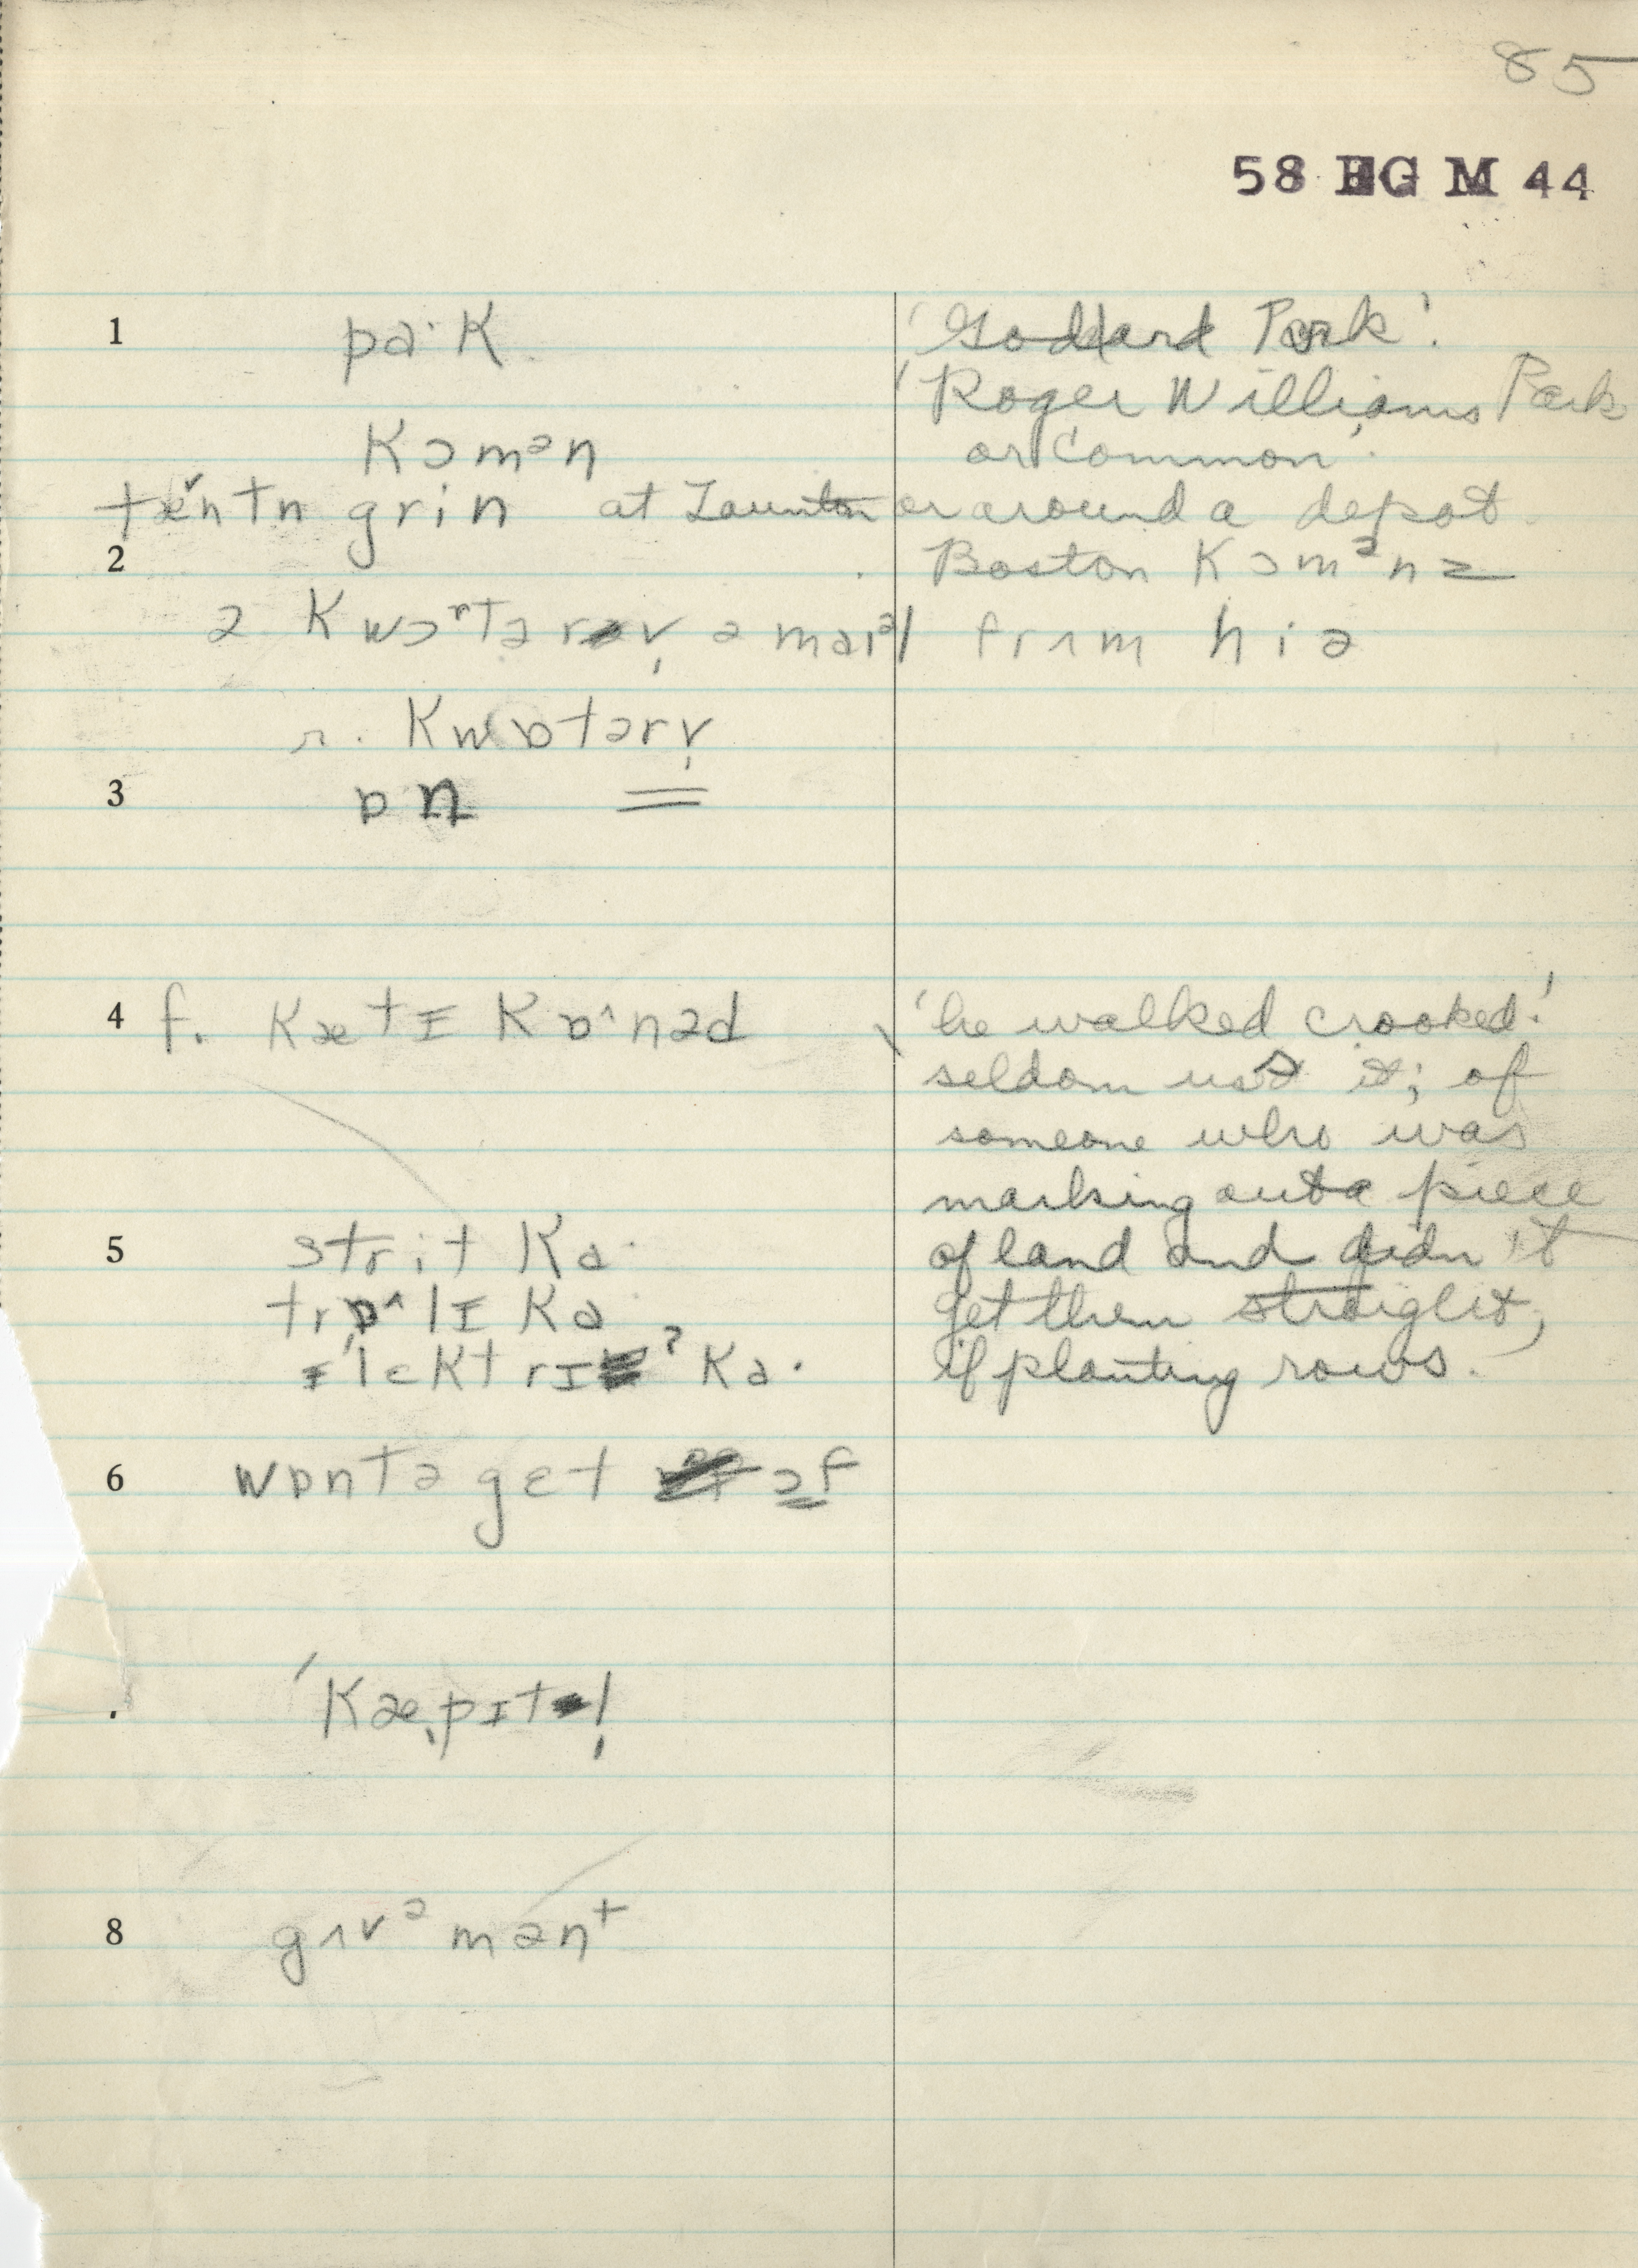 85
58 EG M 44
1 pa·K 'Goddard Park'.
'Roger Williams Park
Kɔmən or Common'.
tæ̌ntn grin at Taunton or around a depot.
2 Boston Kɔmᵊn =
ə Kwɔʳtər v̩ ə maiᵊl frʌm hiə
r. Kwɒtərv̩
3 ɒn =
4 f. KætɪKɒ^nəd 'he walked crooked.'
seldom used it; of
someone who was
marking out a piece
5 strit Ka· of land and didn't
trɒ^lɪ Ka· get them straight,
ɪ'lɛktrɪ ʔ Ka· if planting rows.
6 wɒntə gɛt ɔf
'Kæ̩pɪtl̩
8 gʌvᵊmənt